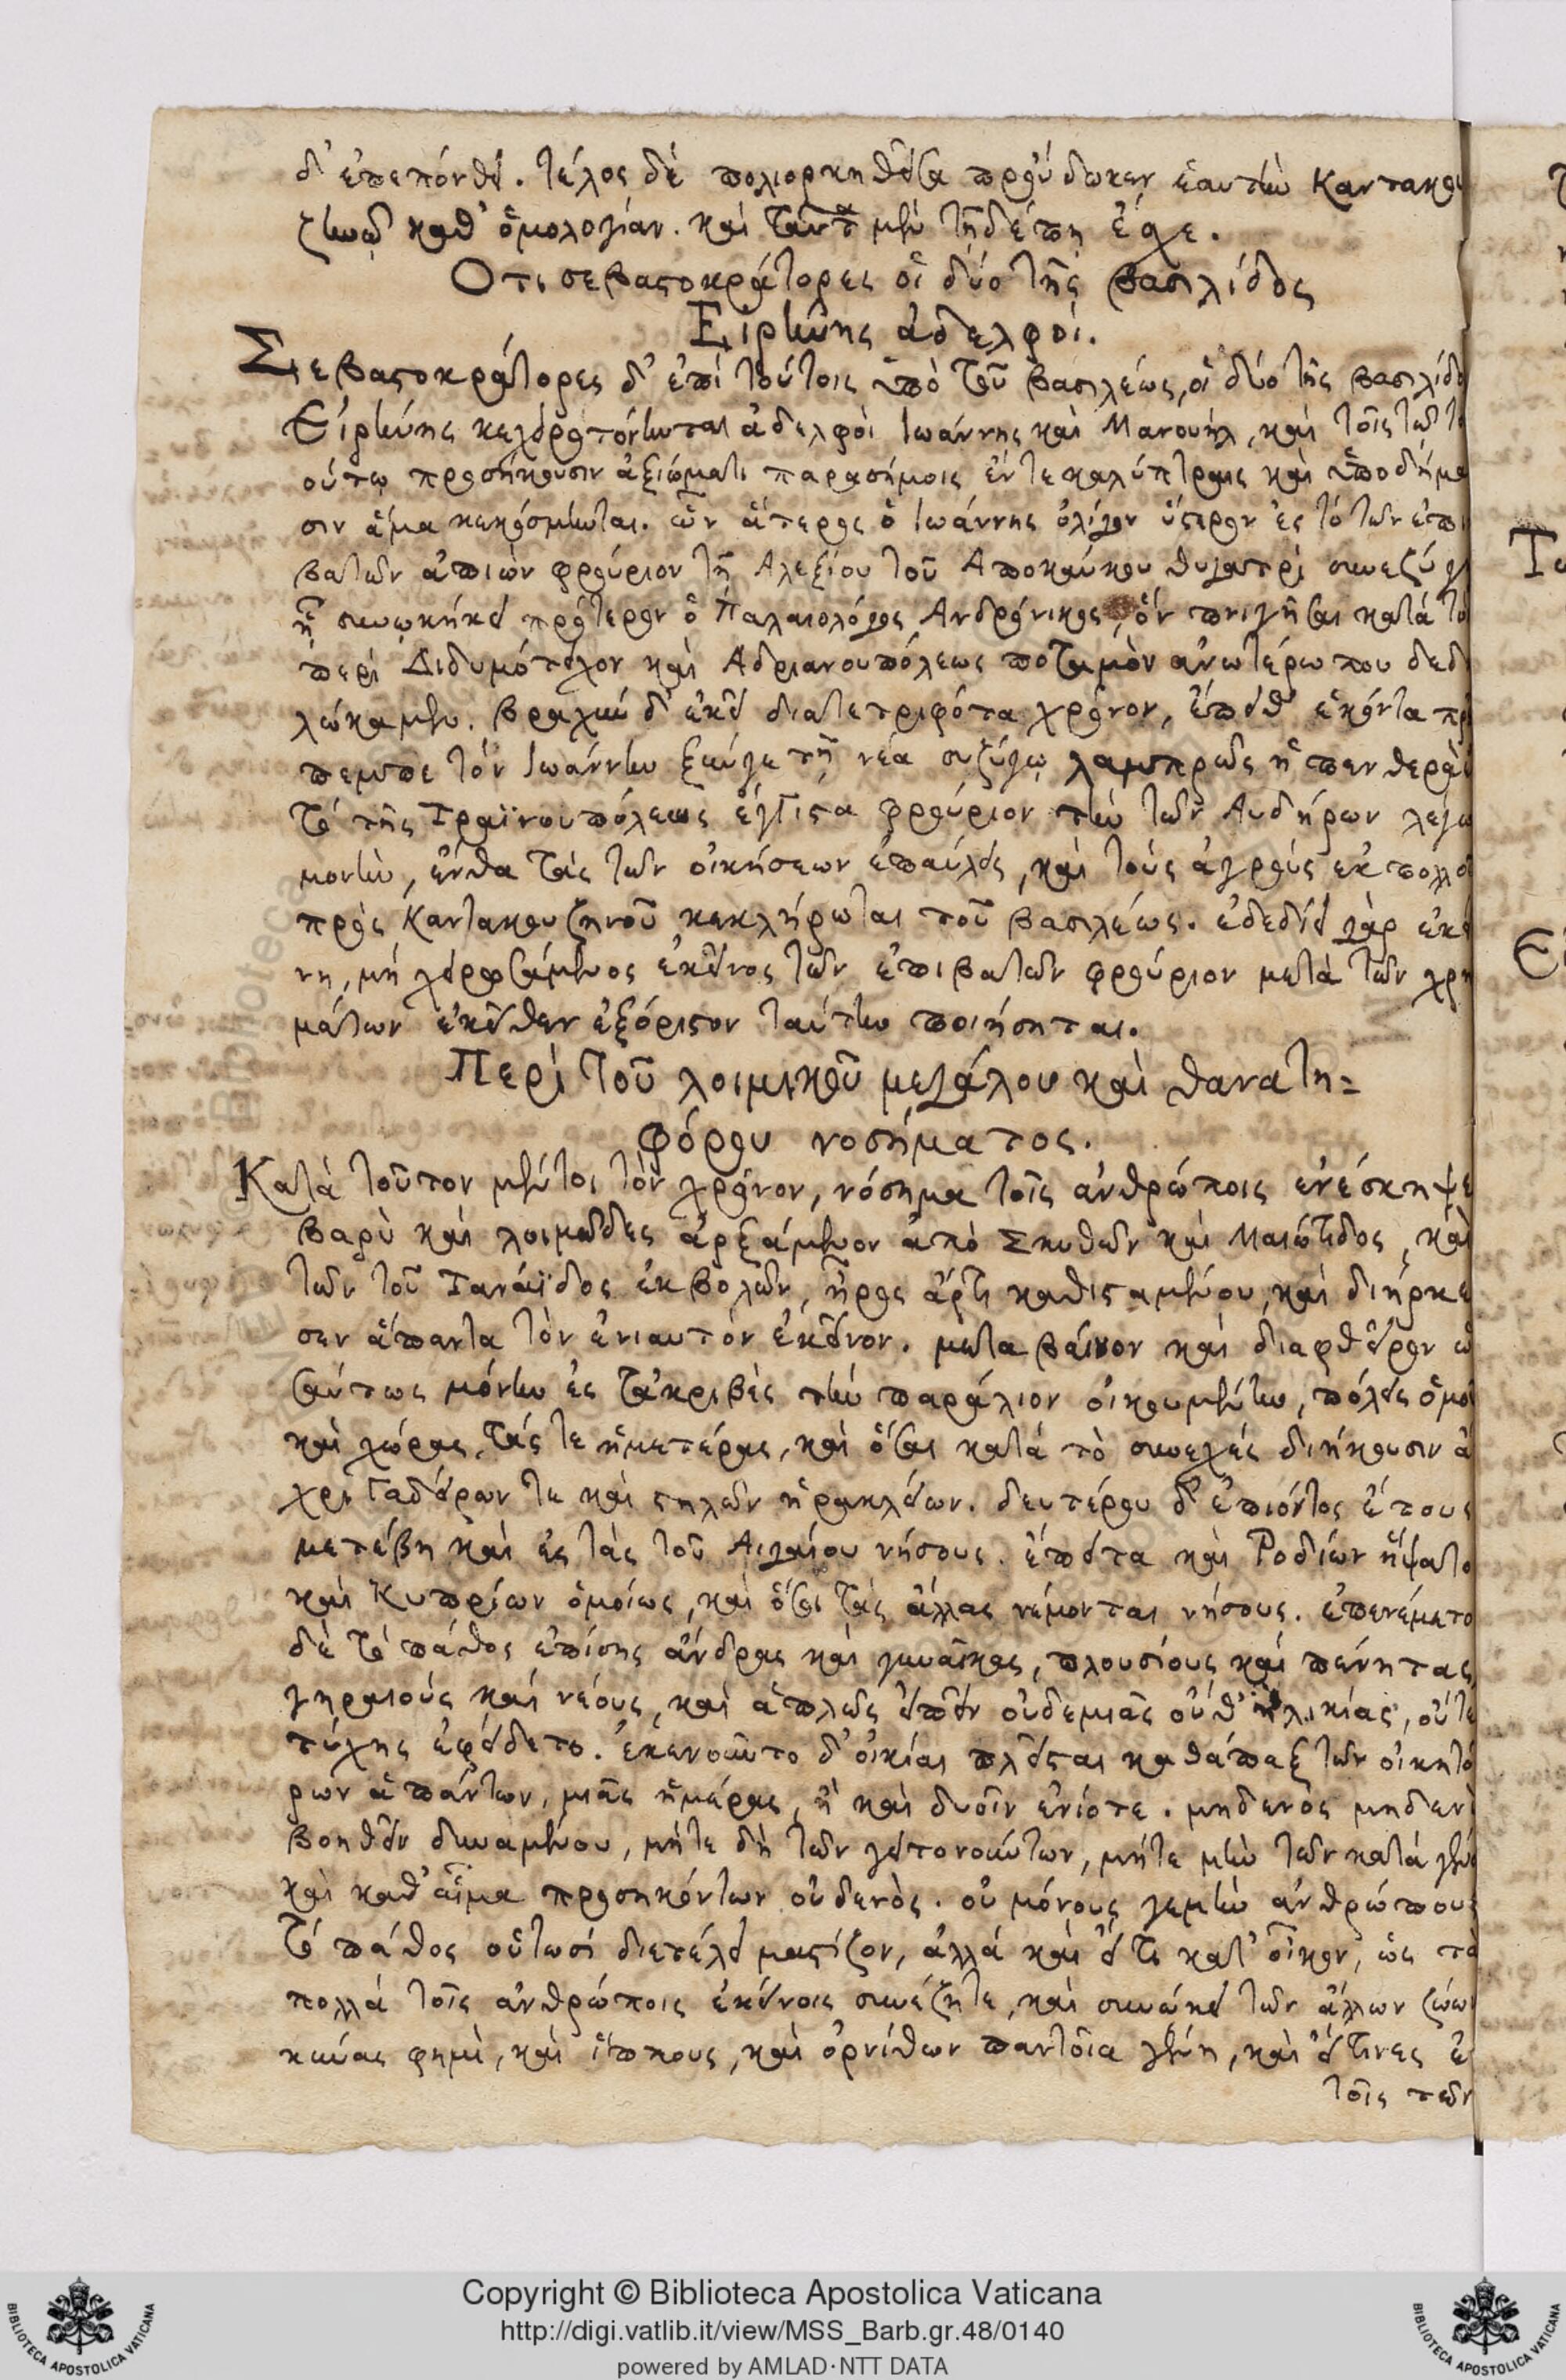 δ' ἐπεπόνθει. τέλος δὲ πολιορκηθεῖσα προὔδωκεν ἑαυτὴν Καντακου
ζηνῷ καθ' ὁμολογίαν. καὶ ταῦτα μὲν τῇδέ πῃ εἶχε.
Ὅτι σεβαστοκράτορες οἱ δύο τῆς βασιλίδος
Εἰρήνης ἀδελφοί.
Σεβαστοκράτορες δ' ἐπὶ τούτοις ὑπὸ τοῦ βασιλέως, οἱ δύο τῆς βασιλίδο
Εἰρήνης κεχειροτόνηνται ἀδελφοὶ Ἰωάννης καὶ Μανουὴλ, καὶ τοῖς τῷ το
ούτῳ προσήκουσιν ἀξιώματι παρασήμοις ἔν τε καλύπτραις καὶ ὑποδήμα
σιν ἅμα κεκόσμηνται. ὧν ἅτερος ὁ Ἰωάννης ὀλίγον ὕστερον ἐς τὸ τῶν ἐπι
βατῶν ἀπιὼν φρούριον τῇ Ἀλεξίου τοῦ Ἀποκαύκου θυγατρὶ συνεζύγη
ᾗ συνῳκήκει πρότερον ὁ Παλαιολόγος Ἀνδρόνικος, ὃν πνιγῆναι κατὰ τὸ
περὶ Διδυμότειχον καὶ Ἀδριανουπόλεως ποταμὸν ἀνωτέρω που δεδη
λώκαμεν. βραχὺν δ' ἐκεῖ διατετριφότα χρόνον, ἔπειθ' ἑκόντα πρ
πεμπε τὸν Ἰωάννην ξὺν γε τῇ νέᾳ συζύγῳ λαμπρῶς ἡ πενθερὰ
τὸ τῆς Τραϊνουπόλεως ἔγγιστα φρούριον τὴν τῶν Αὐδήρων λεγο
μένην, ἔνθα τὰς τῶν οἰκήσεων ἐπαύλεις, καὶ τοὺς ἀγροὺς ἐκ πολλοῦ
πρὸς Καντακουζηνοῦ κεκλήρωται τοῦ βασιλέως. ἐδεδίει γὰρ ἐκεί
νη, μὴ χειρωσάμενος ἐκεῖνος τῶν ἐπιβατῶν φρούριον μετὰ τῶν χρη
μάτων ἐκεῖθεν ἐξόριστον ταύτην ποιήσηται.
Περὶ τοῦ λοιμικοῦ μεγάλου καὶ θανατη=
φόρου νοσήματος.
Κατὰ τοῦτον μέντοι τὸν χρόνον, νόσημα τοῖς ἀνθρώποις ἐνέσκηψε
βαρὺ καὶ λοιμῶδες ἀρξάμενον ἀπὸ Σκυθῶν καὶ Μαιώτιδος, καὶ
τῶν τοῦ Τανάϊδος ἐκβολῶν, ἦρος ἄρτι καθισταμένου, καὶ διήρκε
σεν ἅπαντα τὸν ἐνιαυτὸν ἐκεῖνον. μεταβαῖνον καὶ διαφθεῖρον ὡ
σαύτως μόνην ἐς τἀκριβὲς τὴν παράλιον οἰκουμένην, πόλεις ὁμοῦ
καὶ χώρας, τάς τε ἡμετέρας, καὶ ὅσαι κατὰ τὸ συνεχὲς διήκουσιν ἄ
χρι Γαδείρων τε καὶ στηλῶν ἡρακλείων. δευτέρου δ' ἐπιόντος ἔτους
μετέβη καὶ ἐς τὰς τοῦ Αἰγαίου νήσους. ἔπειτα καὶ Ῥοδίων ἥψατο
καὶ Κυπρίων ὁμοίως, καὶ ὅσοι τὰς ἄλλας νέμονται νήσους. ἐπενέματο
δὲ τὸ πάθος ἐπίσης ἄνδρας καὶ γυναῖκας, πλουσίους καὶ πένητας,
γηραιοὺς καὶ νέους, καὶ ἁπλῶς εἰπεῖν οὐδεμιᾶς οὔθ' ἡλικίας, οὔτε
τύχης ἐφείδετο. ἐκενοῦντο δ' οἰκίαι πλεῖσται καθάπαξ τῶν οἰκητό
ρων ἁπάντων, μιᾶς ἡμέρας, ἢ καὶ δυοῖν ἐνίοτε. μηδενὸς μηδενὶ
βοηθεῖν δυναμένου, μήτε δὴ τῶν γειτονούντων, μήτε μὴν τῶν κατὰ γένο
καὶ καθ' αἷμα προσηκόντων οὐδενός. οὐ μόνους γε μὴν ἀνθρώπους
τὸ πάθος οὑτωσὶ διετέλει μαστίζον, ἀλλὰ καὶ εἴ τι κατ' οἶκον, ὡς τὰ
πολλὰ τοῖς ἀνθρώποις ἐκείνοις συνέζητε, καὶ συνῴκει τῶν ἄλλων ζώων
κύνας φημὶ, καὶ ἵππους, καὶ ὀρνίθων παντοῖα γένη, καὶ εἴ τινες ἐ
τοῖς τῶν
Copyright © Biblioteca Apostolica Vaticana
http://digi.vatlib.it/view/MSS_Barb.gr.48/0140
powered by AMLAD·NTT DATA
BIBLIOTECA APOSTOLICA VATICANA
BIBLIOTECA APOSTOLICA VATICANA